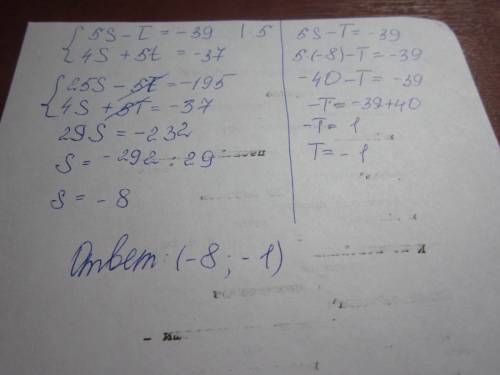 5S - T = -39 | · 5
4S + 5t = -37
25S - 5T = -195
4S + 5T = -37
29S = -232
S = -292 : 29
S = -8
5S - T = -39
5·(-8) - T = -39
-40 - T = -39
-T = -39 + 40
-T = 1
T = -1
Ответ: (-8; -1)